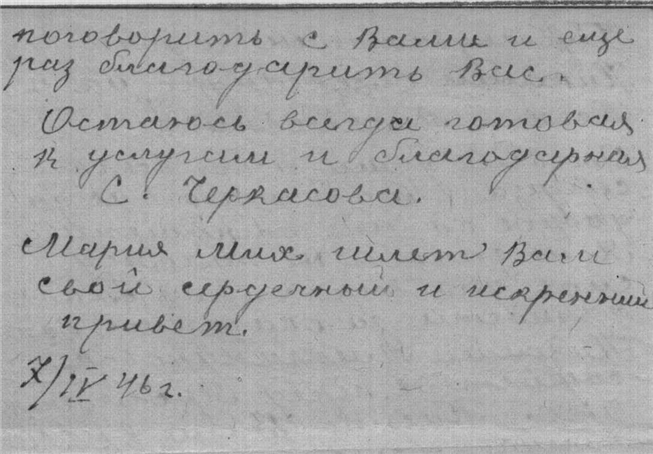 поговорить с Вами и еще
раз благодарить Вас.
Остаюсь всегда готовая
к услугам и благодарная
С. Черкасова.
Мария Мих шлет Вам
свой сердечный и искренний
привет.
7/IV 46 г.